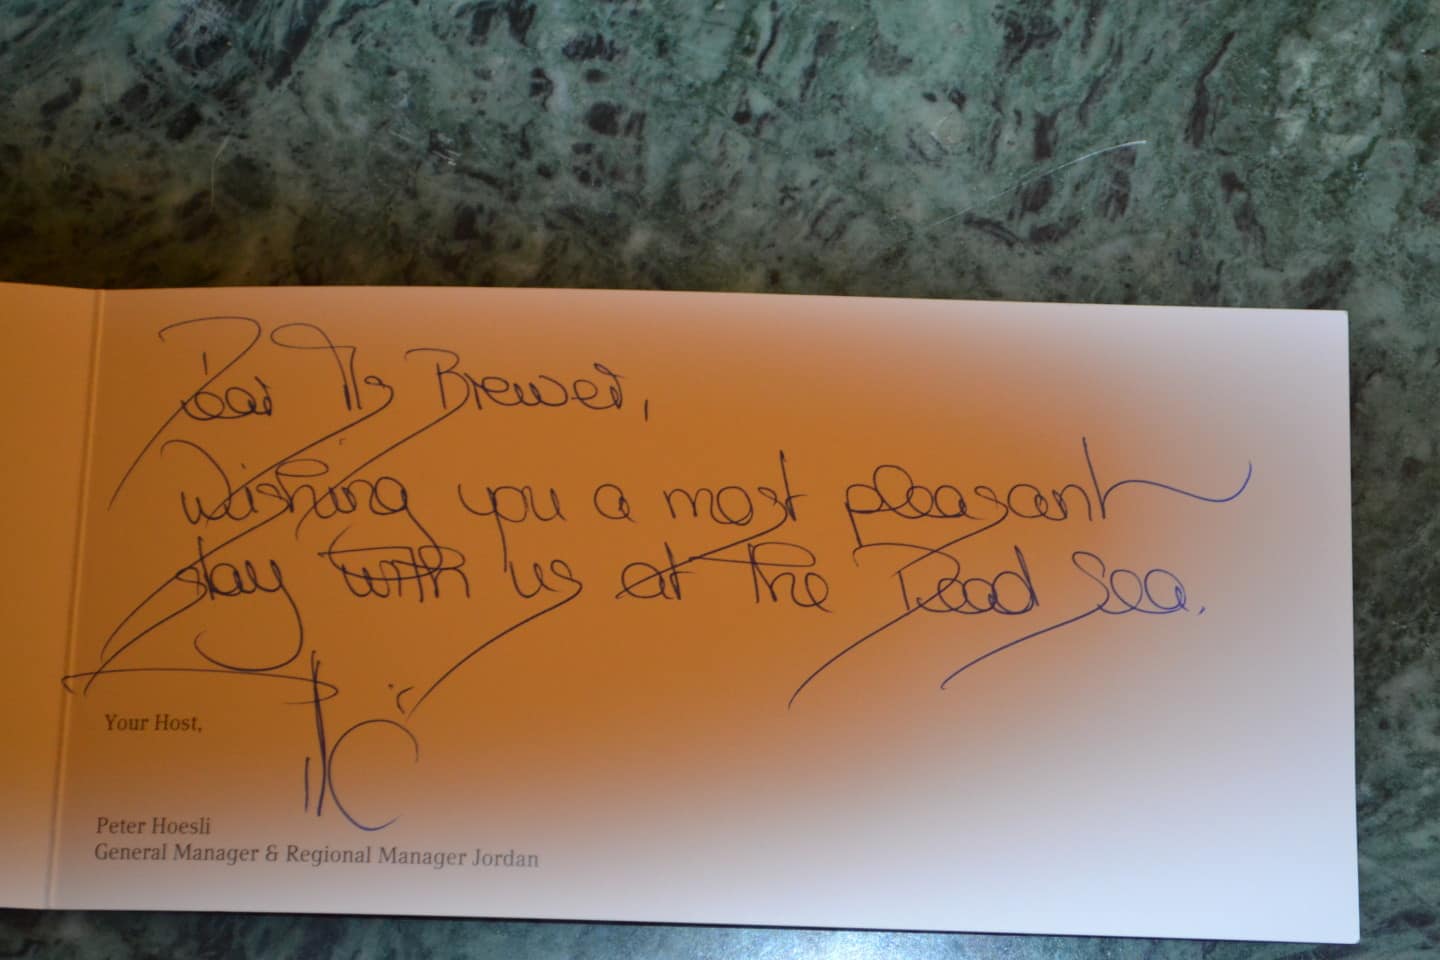 Dear Ms Brewer,
Wishing you a most pleasant
stay with us at the Dead Sea.
Your Host,
Peter Hoesli
General Manager & Regional Manager Jordan